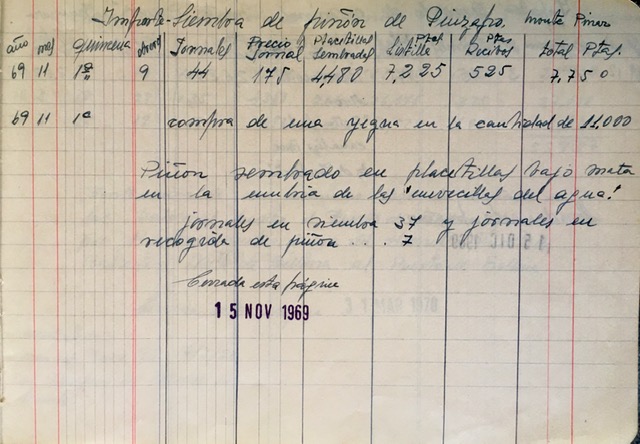 Importe-Siembra de piñón de Pinsapo. Monte Pinar
año mes quincena obreros Jornales Precio Jornal Placetillas Sembradas Ptas. Listilla Ptas Recibos total Ptas.
69 11 1ª 9 44 175 4,480 7,225 525 7,750
69 11 1ª compra de una yegua en la cantidad de 11,000
Piñon sembrado en placetillas bajo mata
en la umbria de las "cuevecillas del agua"
jornales en siembra 37 y jornales en
recogida de piñon ... 7
Cerrada esta página
15 NOV 1969